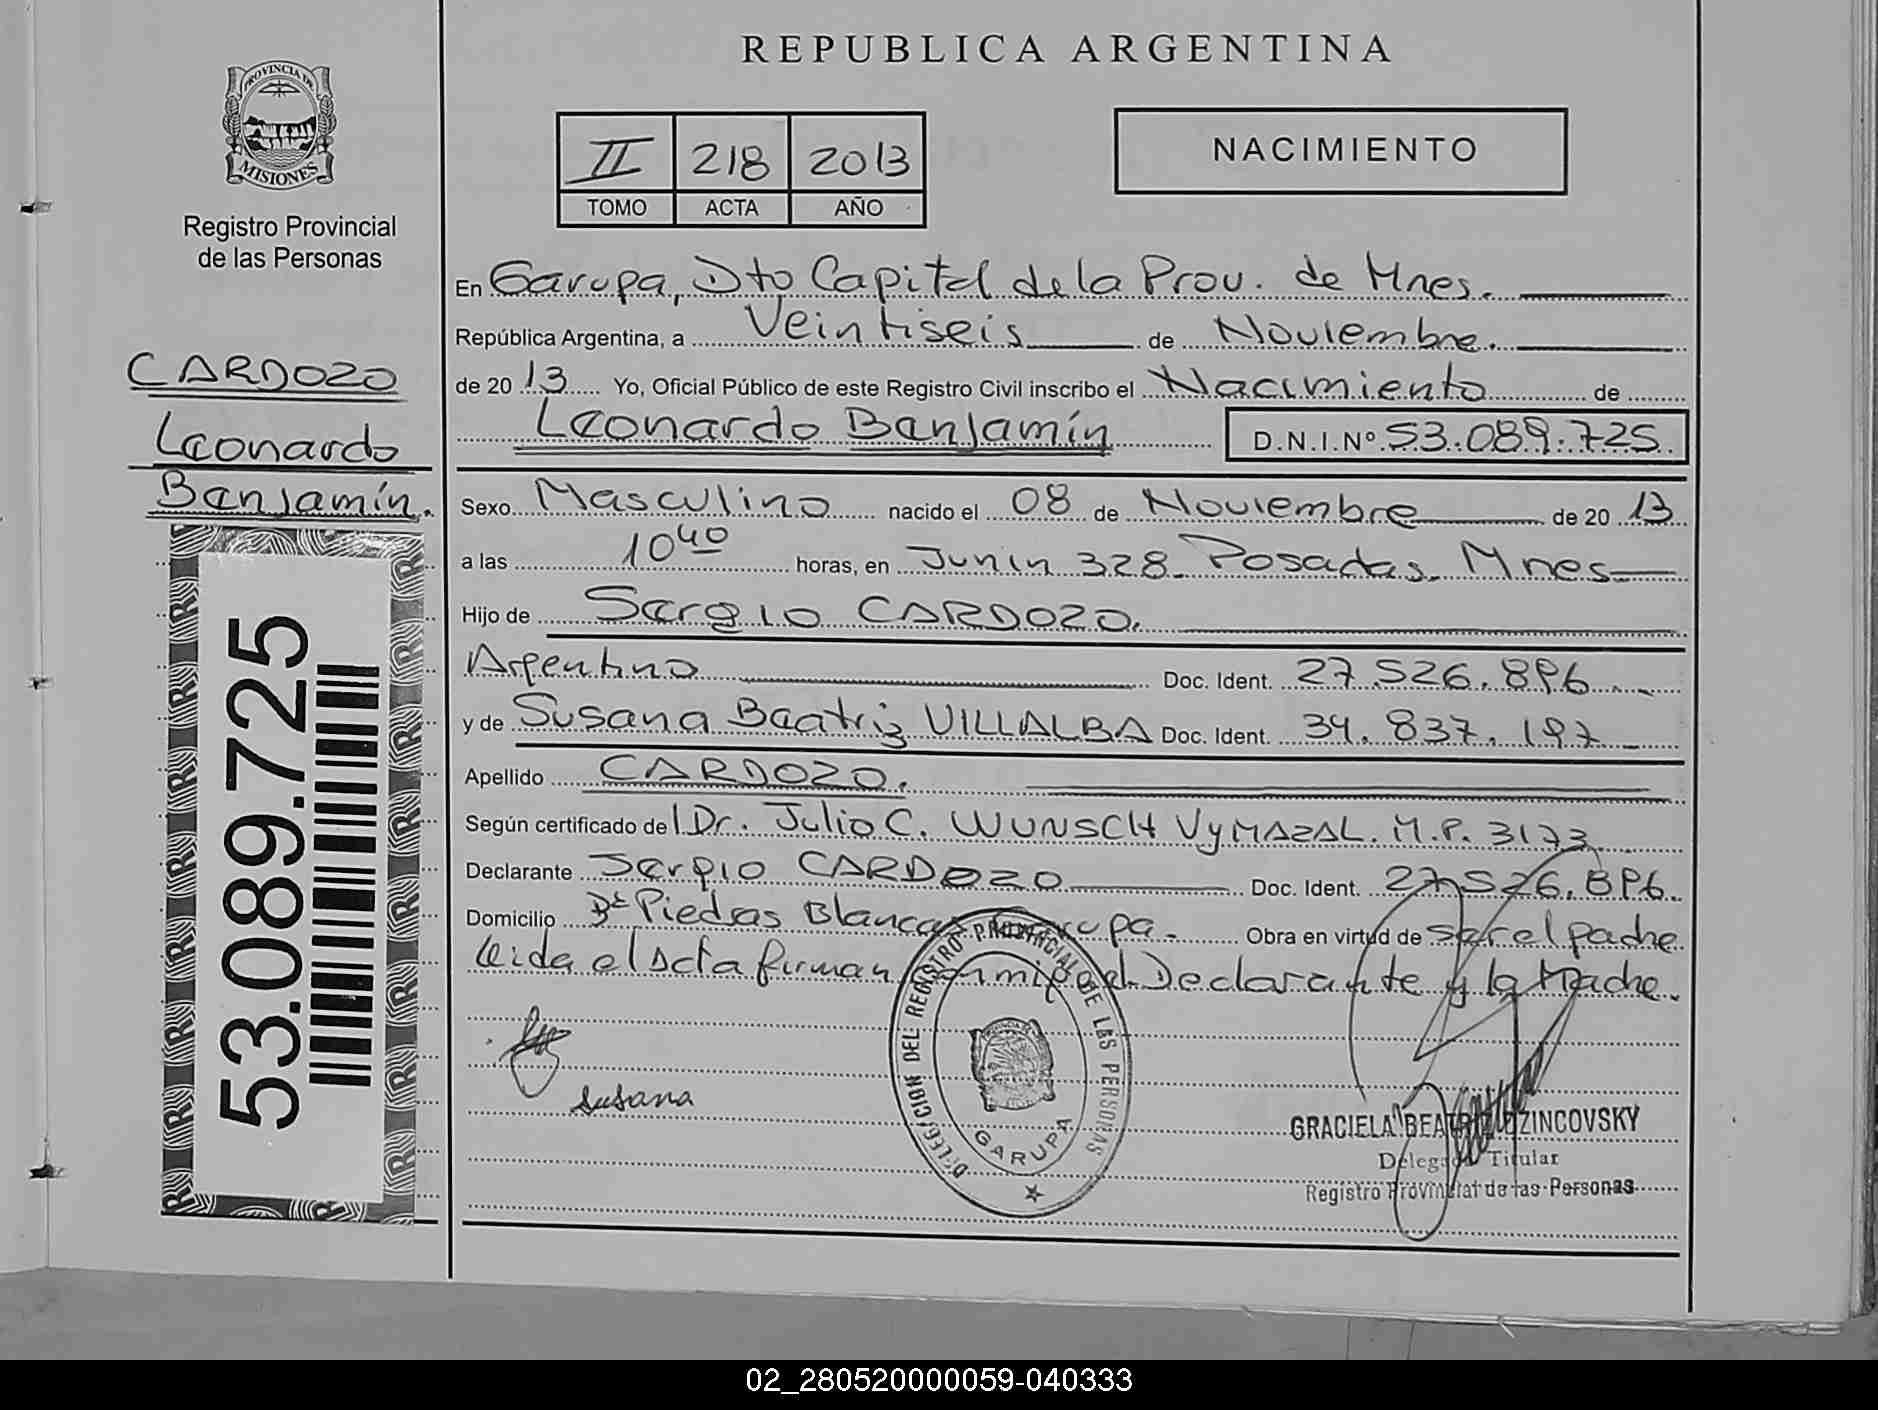 REPUBLICA ARGENTINA
PROVINCIA DE
MISIONES
Registro Provincial
de las Personas
II 218 2013
TOMO ACTA AÑO
NACIMIENTO
CARDOZO
Leonardo
Benjamín.
53.089.725
En Garupa, Dto Capital de la Prov. de Mnes.
República Argentina, a Veintiseis de Noviembre.
de 20 13 Yo, Oficial Público de este Registro Civil inscribo el Nacimiento de
Leonardo Benjamín D.N.I.Nº 53.089.725
Sexo Masculino nacido el 08 de Noviembre de 20 13
a las 10 40 horas, en Junin 328 Posadas. Mnes
Hijo de Sergio CARDOZO.
Argentino Doc. Ident. 27.526.896
y de Susana Beatriz VILLALBA Doc. Ident. 34.837.197
Apellido CARDOZO.
Según certificado del Dr. Julio C. WUNSCH VyMAZAL. M.P. 3173
Declarante Sergio CARDOZO Doc. Ident. 27.526.896.
Domicilio Bº Piedras Blancas Garupa. Obra en virtud de ser el padre
leida el Acta firman conmigo el Declarante y la Madre.
Susana
DELEGACION DEL REGISTRO PROVINCIAL DE LAS PERSONAS
GARUPA
GRACIELA BEATRIZ DZINCOVSKY
Delegada Titular
Registro Provincial de las Personas
02_280520000059-040333